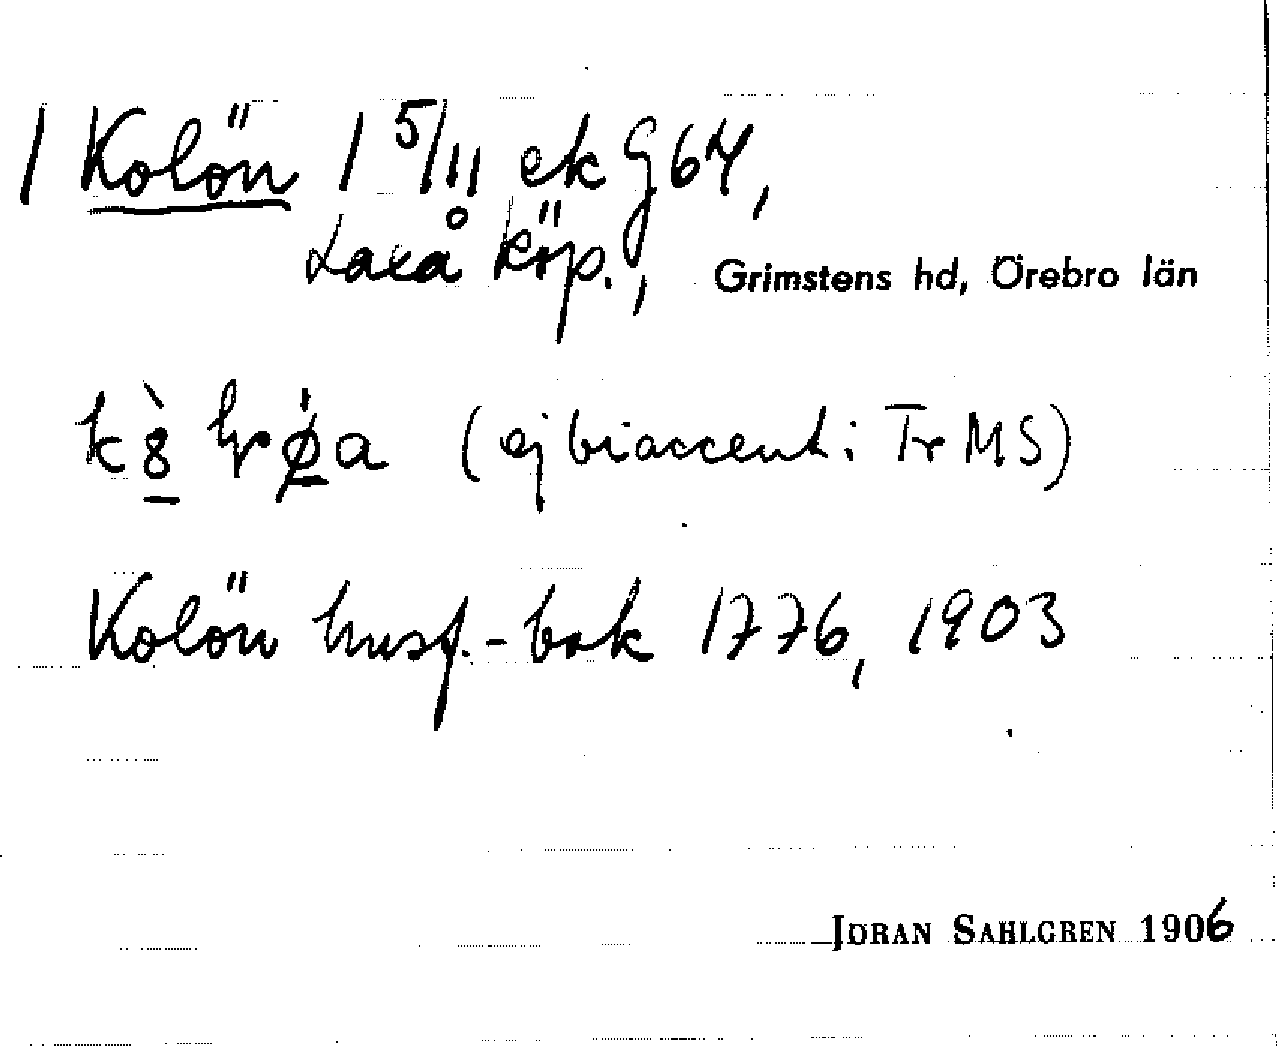 1 Kolön 1 5/11 ek G 67,
Laxå köp., Grimstens hd, Örebro län
(ej biaccent: Tr MS)
Kolön husf.-bok 1776, 1903
JÖRAN SAHLGREN 1906